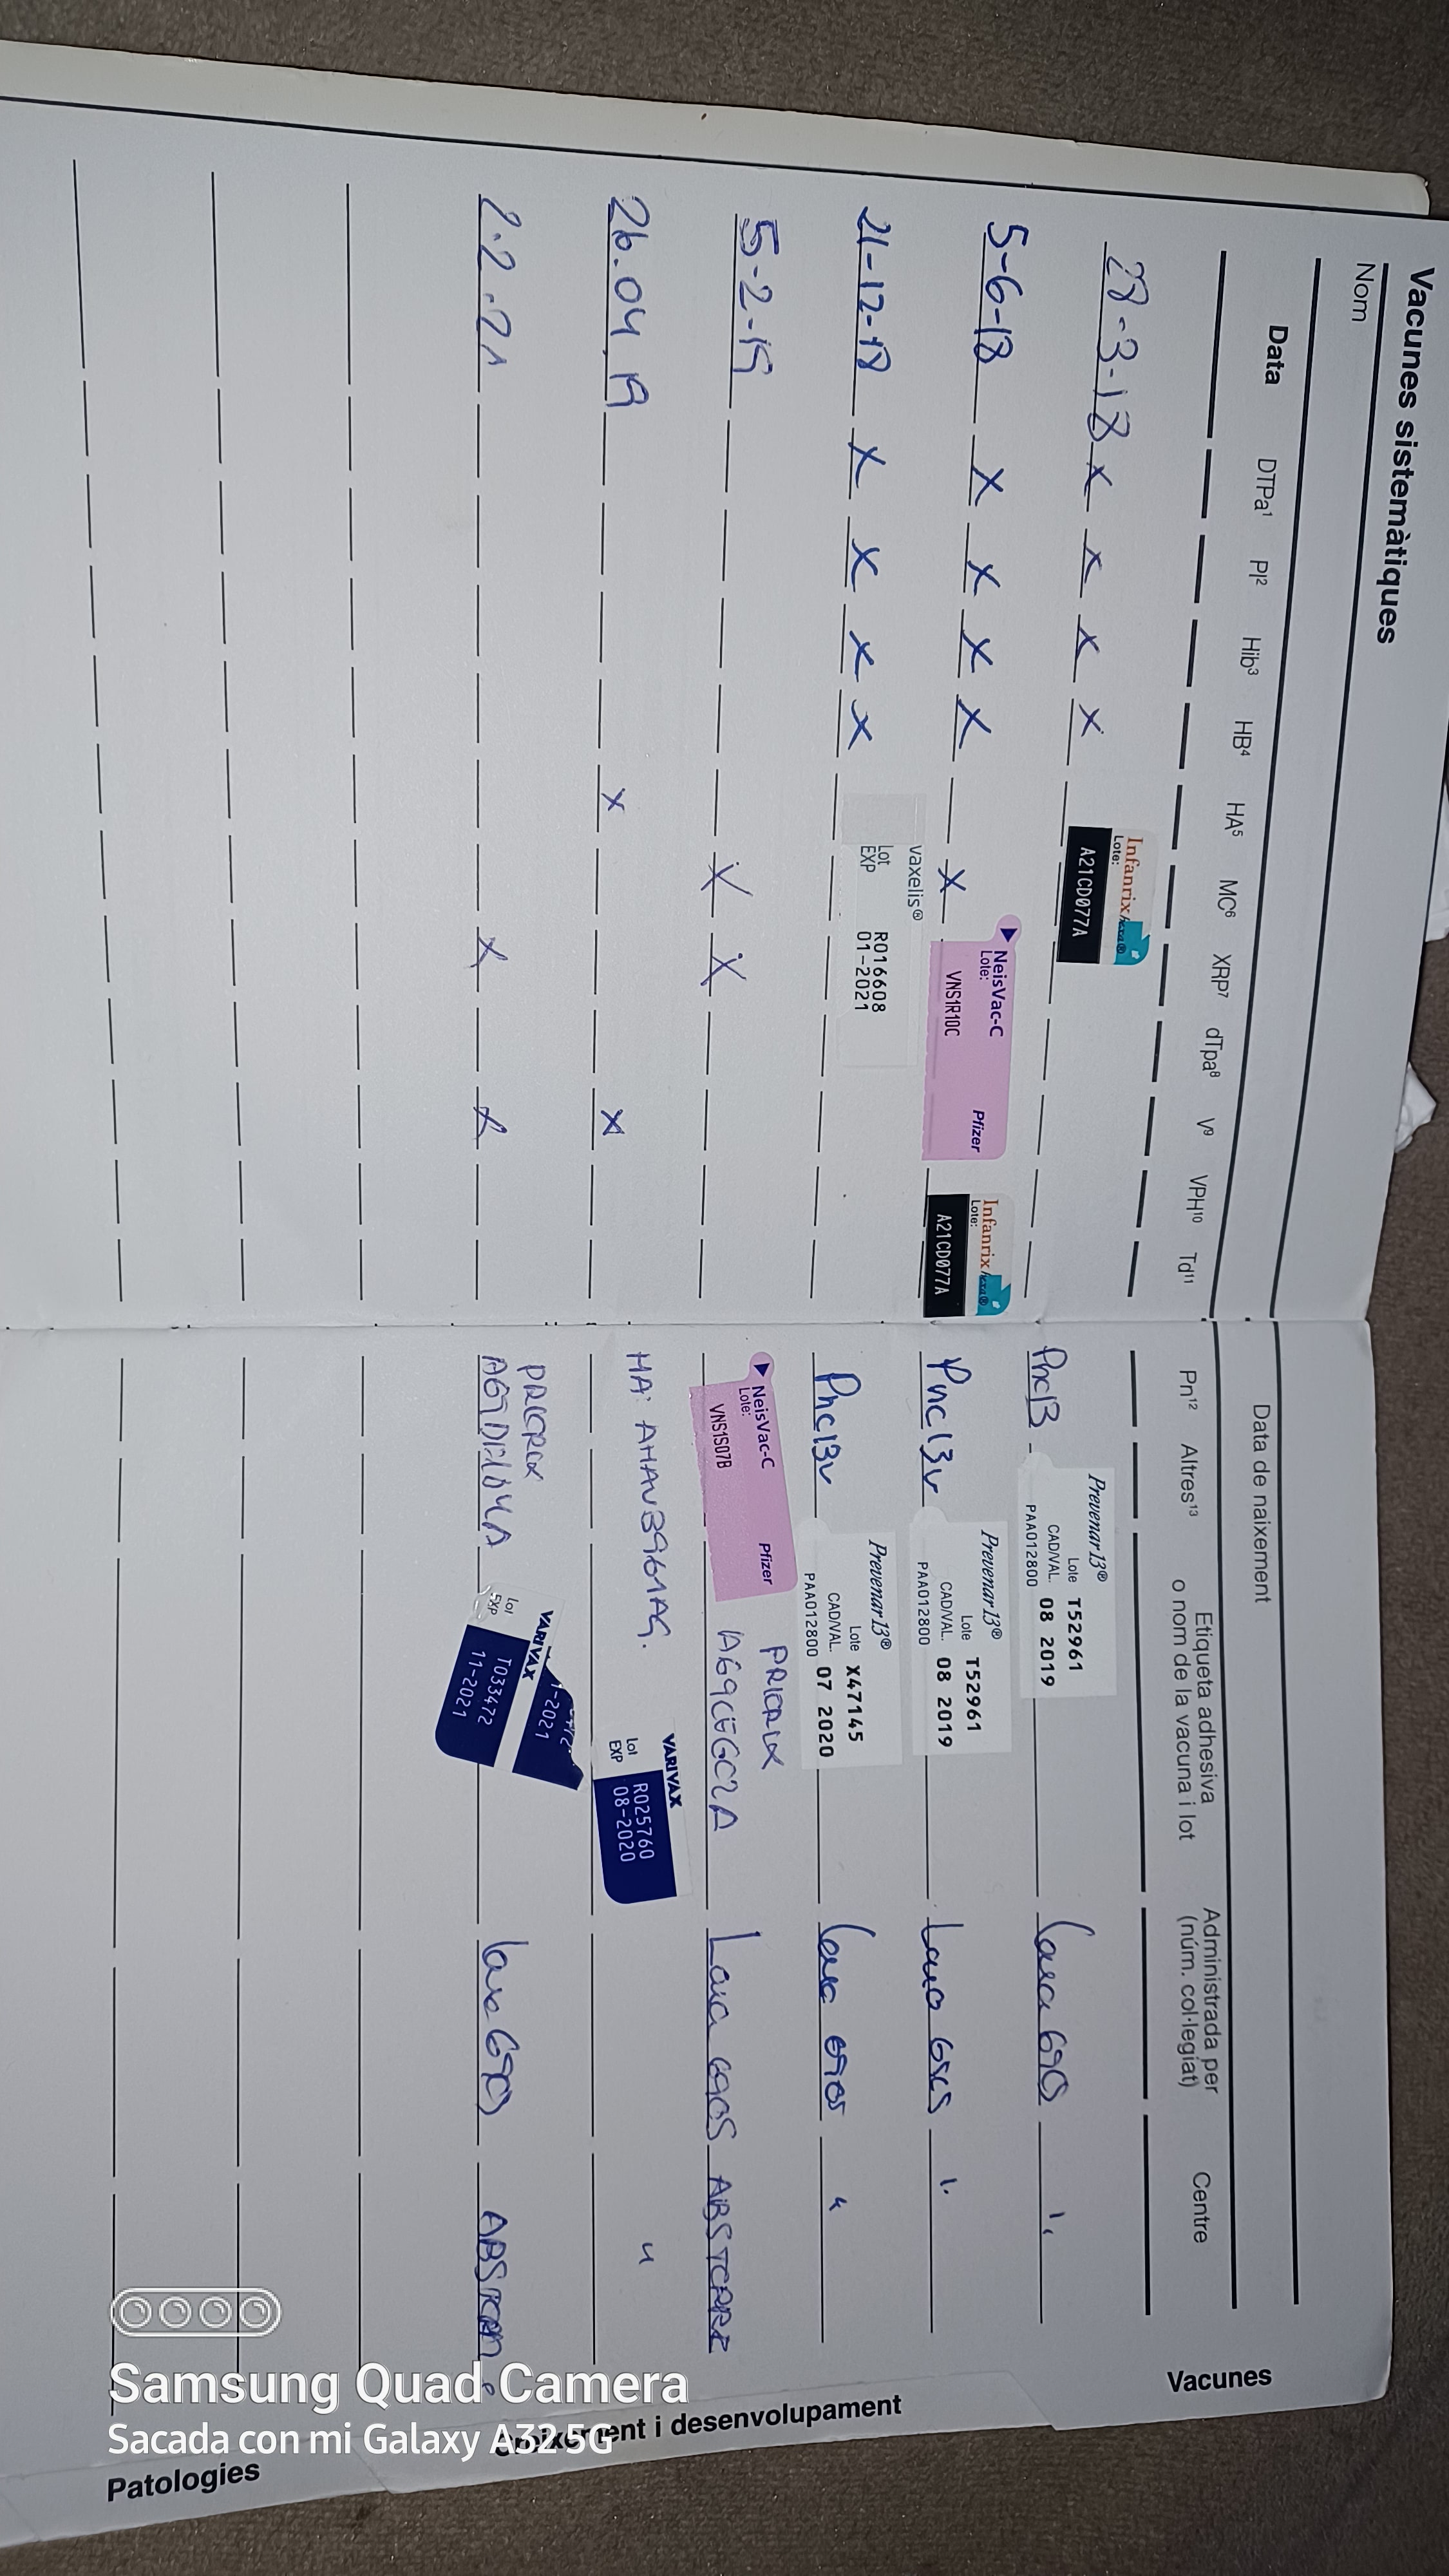 Vacunes sistemàtiques
Nom
Data de naixement
Data DTPa¹ PI² Hib³ HB⁴ HA⁵ MC⁶ XRP⁷ dTpa⁸ V⁹ VPH¹⁰ Td¹¹ Pn¹² Altres¹³ Etiqueta adhesiva o nom de la vacuna i lot Administrada per (núm. col·legiat) Centre
28-3-18 x x x x
Infanrix hexa®
Lote:
A21CD077A
Pnc13
Prevenar 13®
Lote T52961
CAD/VAL. 08 2019
PAA012800
5-6-18 x x x x x
NeisVac-C
Lote:
VNS1R10C
Pfizer
Infanrix hexa®
Lote:
A21CD077A
Pnc13v
Prevenar 13®
Lote T52961
CAD/VAL. 08 2019
PAA012800
21-12-18 x x x x
vaxelis®
Lot R016608
EXP 01-2021
Pnc13v
Prevenar 13®
Lote X47145
CAD/VAL. 07 2020
PAA012800
5-2-19 x x
NeisVac-C
Lote:
VNS1S07B
Pfizer
PRIORIX
26.04.19 x x
HA: AHAVB961AG.
VARIVAX
Lot R025760
EXP 08-2020
2.2.21 x x
PRIORIX
VARIVAX
Lot T033472
EXP 11-2021
Vacunes
Creixement i desenvolupament
Patologies
Samsung Quad Camera
Sacada con mi Galaxy A32 5G